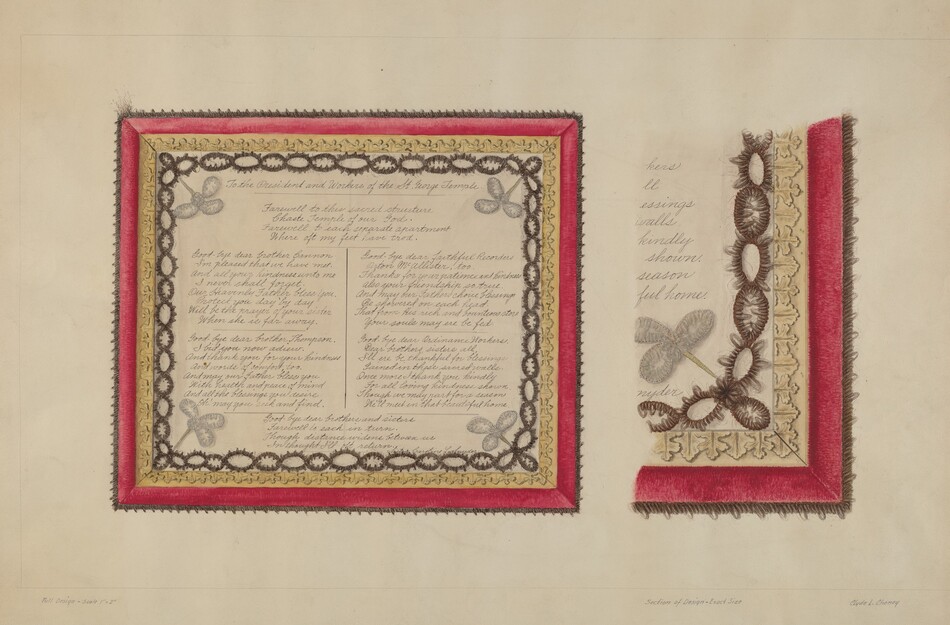 To the President and Workers of the St George Temple
Farewell to thee sacred structure
Chaste Temple of our God.
Farewell to each separate apartment
Where oft my feet have trod.
Good bye dear brother Cannon
I'm pleased that we have met.
And all your kindness unto me
I never shall forget.
Our heavenly Father bless you,
Protect you day by day
Will be the prayer of your sister
When she is far away.
Good bye dear brother Thompson,
I bid you now adieu.
And thank you for your kindness
And words of comfort too.
And may our father bless you
With health and peace of mind
And all the blessings you desire
Oh may you seek and find.
Good bye dear faithful Recorder
McAllister, too
Thanks for your patience and kindness
your friendship so true.
And may our Father's choice blessings
Be showered on each head
That from his rich and bounteous store
Your souls may are be fed.
Good bye dear Ordinance Workers,
Dear brothers sisters all
I'll are be thankful for blessings
Gained in these sacred walls
Once more I thank you kindly
For all loving kindness shown
Though we may part for a season
We'll meet in that beautiful home.
Good bye dear brothers and sisters
Farewell to each in turn.
Though distance widens between us
In thought I'll oft return.
hers
ll
essings
walls
kindly
shown.
season
ful home.
nyder
Full Design - Scale 1"=2"
Section of Design - Exact Size
Clyde L. Cheney